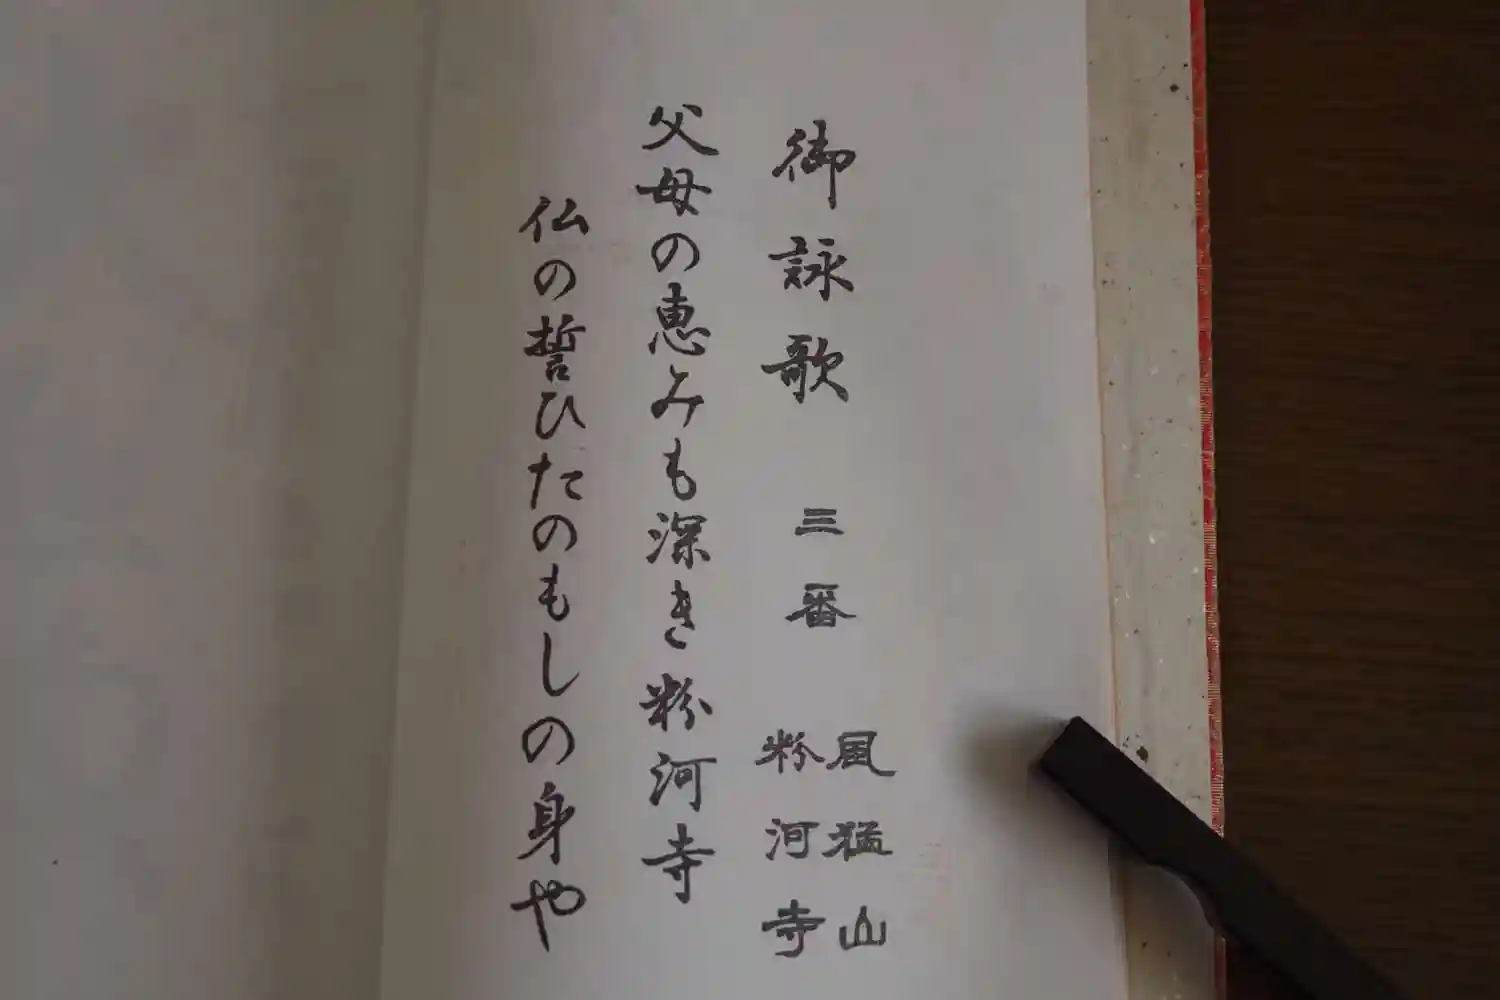 御詠歌 三番 風猛山
粉河寺
父母の恵みも深き粉河寺
仏の誓ひたのもしの身や